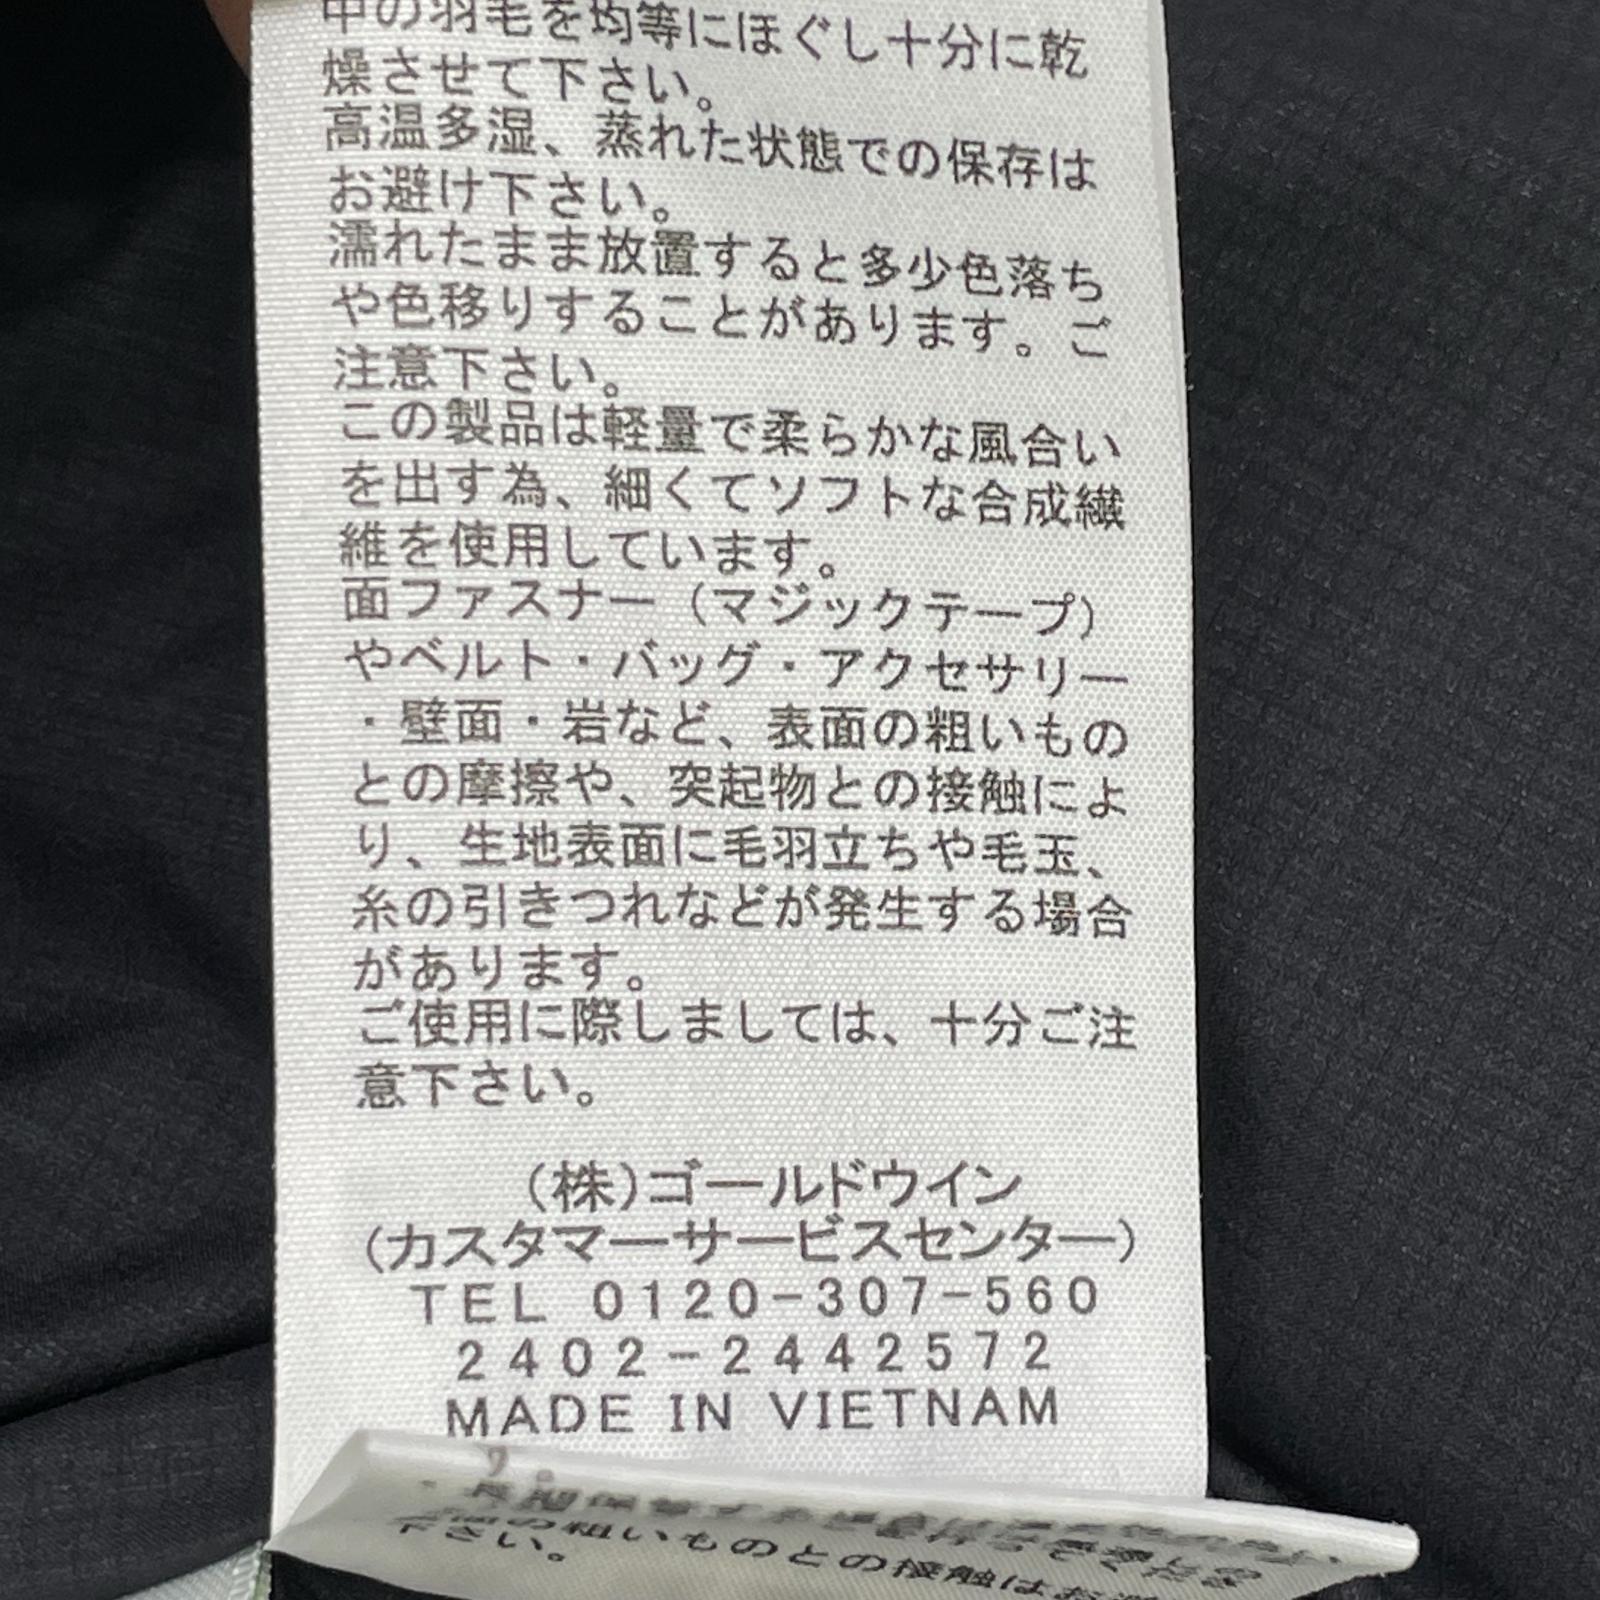 中の羽毛を均等にほぐし十分に乾
燥させて下さい。
高温多湿、蒸れた状態での保存は
お避け下さい。
濡れたまま放置すると多少色落ち
や色移りすることがあります。ご
注意下さい。
この製品は軽量で柔らかな風合い
を出す為、細くてソフトな合成繊
維を使用しています。
面ファスナー（マジックテープ）
やベルト・バッグ・アクセサリー
・壁面・岩など、表面の粗いもの
との摩擦や、突起物との接触によ
り、生地表面に毛羽立ちや毛玉、
糸の引きつれなどが発生する場合
があります。
ご使用に際しましては、十分ご注
意下さい。
（株）ゴールドウイン
（カスタマーサービスセンター）
TEL 0120-307-560
2402-2442572
MADE IN VIETNAM
の粗いものとの接触はお
下さい。